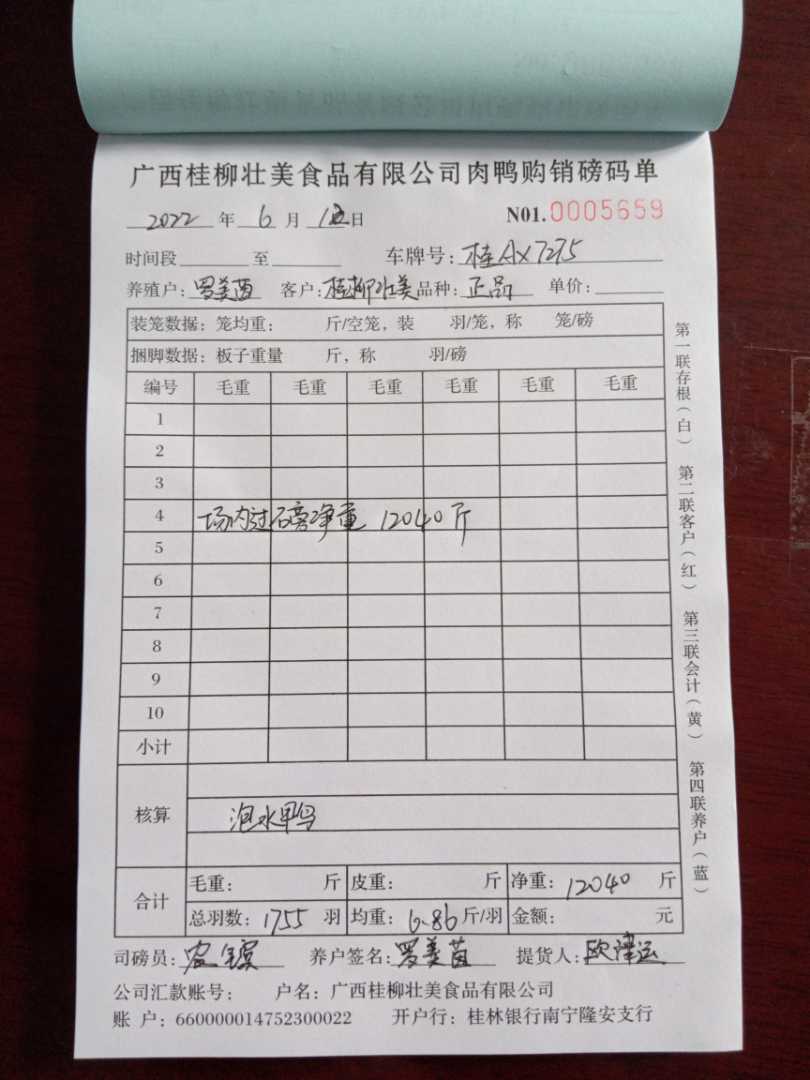 广西桂柳壮美食品有限公司肉鸭购销磅码单
2022 年 6 月 日 N01.0005659
时间段 至 车牌号：桂AX7275
养殖户：罗美茵 客户：桂柳壮美 品种：正品 单价：
装笼数据：笼均重： 斤/空笼，装 羽/笼，称 笼/磅
捆脚数据：板子重量 斤，称 羽/磅
编号 毛重 毛重 毛重 毛重 毛重 毛重
1
2
3
4 场内过磅净重 12040斤
5
6
7
8
9
10
小计
核算 泡水鸭
合计 毛重： 斤 皮重： 斤 净重：12040 斤
总羽数：1755 羽 均重：6.86 斤/羽 金额： 元
司磅员： 养户签名：罗美茵 提货人：欧
公司汇款账号； 户名：广西桂柳壮美食品有限公司
账 户：660000014752300022 开户行：桂林银行南宁隆安支行
第一联存根（白） 第二联客户（红） 第三联会计（黄） 第四联养户（蓝）